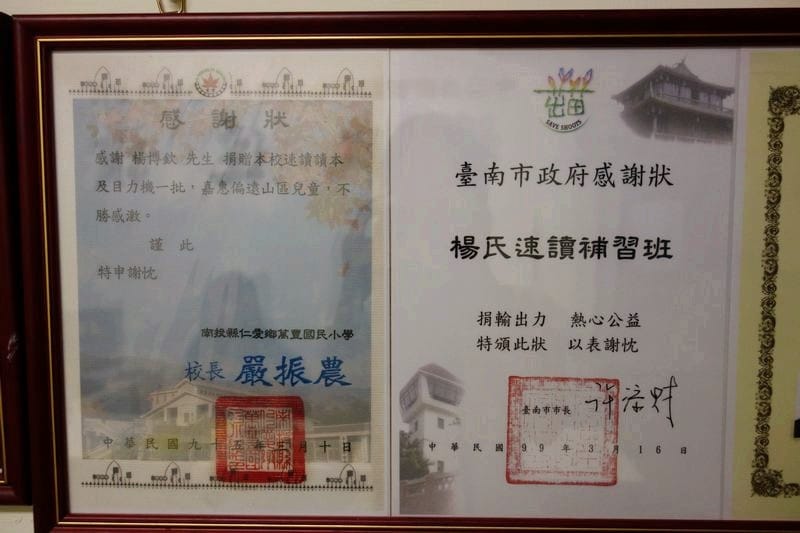 感謝狀
感謝 楊博欽 先生 捐贈本校速讀讀本
及目力機一批，嘉惠偏遠山區兒童，不
勝感激。
謹 此
特申謝忱
南投縣仁愛鄉萬豐國民小學
校長 嚴振農
中華民國九十五年 月十日
出苗
SAVE SHOOTS
臺南市政府感謝狀
楊氏速讀補習班
捐輸出力 熱心公益
特頒此狀 以表謝忱
臺南市市長 許添財
中華民國 99 年 3 月 16 日